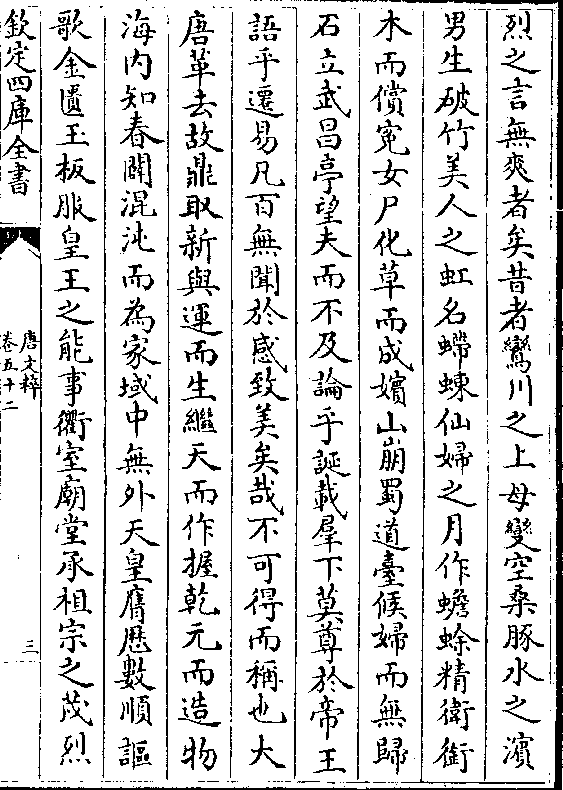 烈之言無爽者矣昔者鸞川之上母變空桑豚水之濱
男生破竹美人之虹名蝃蝀仙婦之月作蟾蜍精衛銜
木而償寃女尸化草而成嬪山崩蜀道臺候婦而無歸
石立武昌亭望夫而不及論乎誕載羣下莫尊於帝王
語乎遷易凡百無聞於感致美矣哉不可得而稱也大
唐革去故鼎取新與運而生繼天而作握乾元而造物
海内知春闢混沌而為家域中無外天皇膺厯數順謳
歌金匱玉板服皇王之能事衢室廟堂承祖宗之茂烈
欽定四庫全書
唐文粹
卷五十二
三